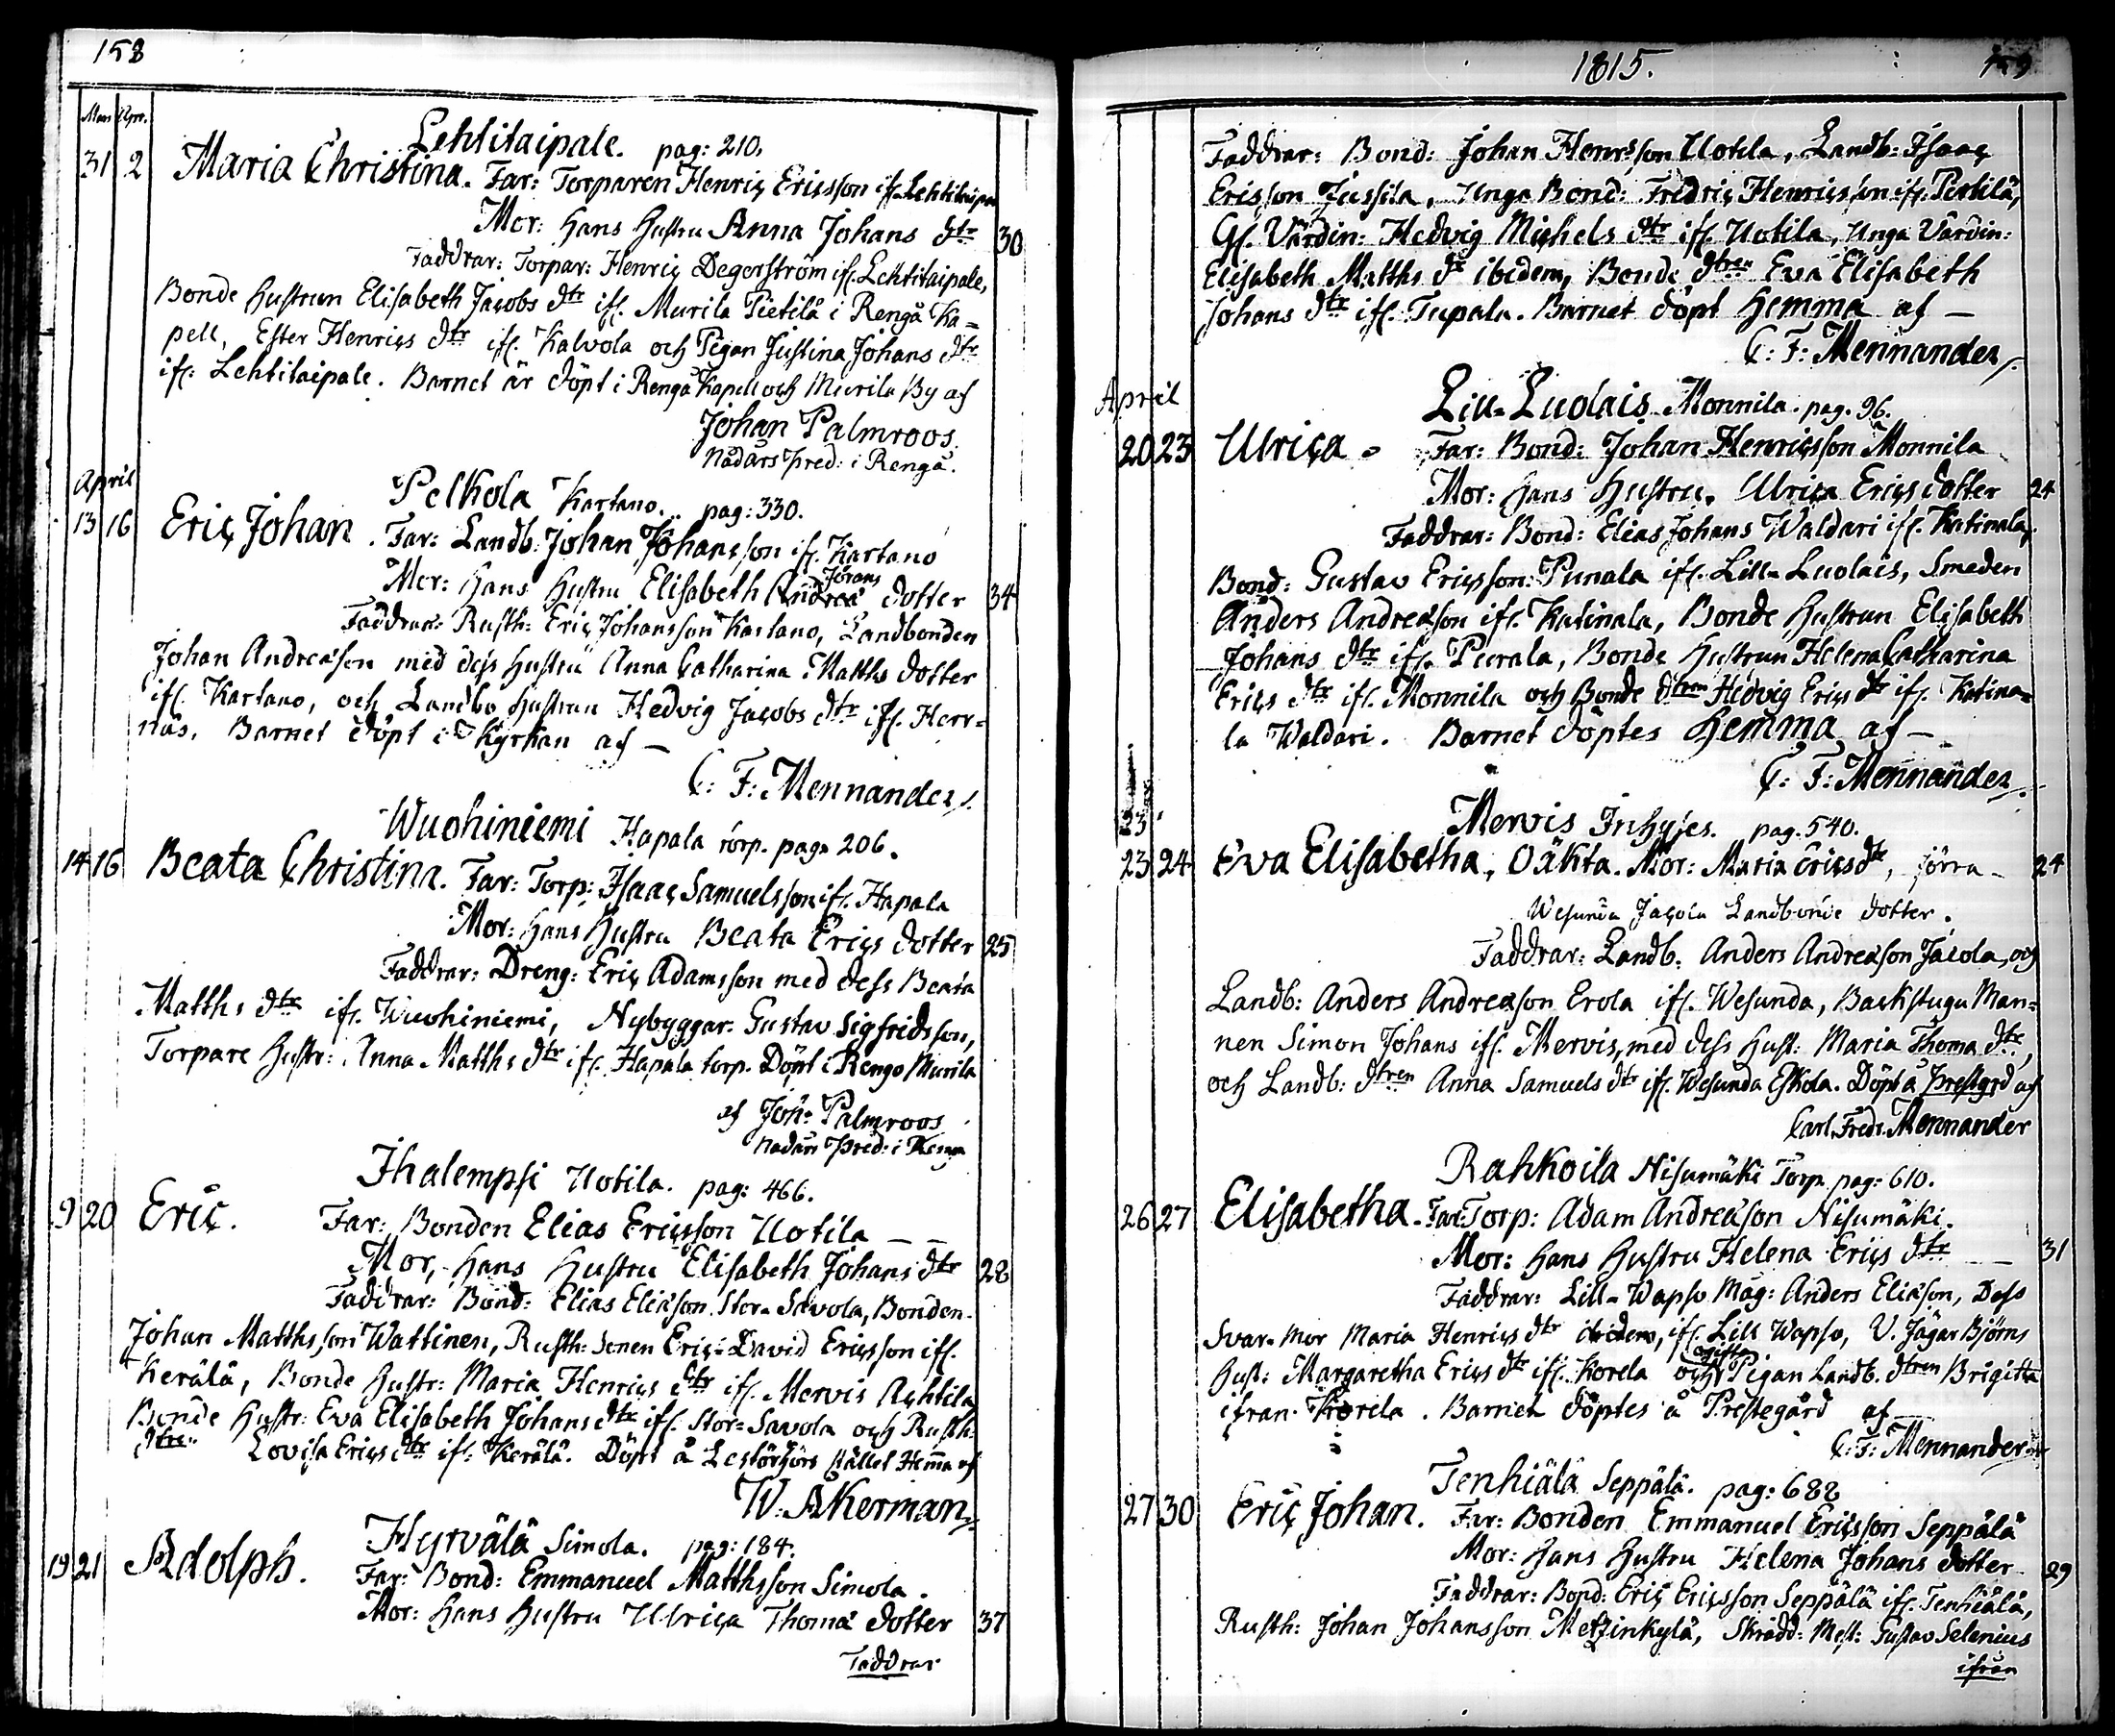 158
Mars Apr.
Lehtitaipale. pag: 210.
31 2 Maria Christina. Far: Torparen Henric Ericsson ifr. Lehtitaipa
Mor: Hans Hustru Anna Johans dtr 30
Faddrar: Torpar: Henric Degerström ifr. Lehtitaipale,
Bonde Hustrun Elisabeth Jacobs dtr ifr. Murila Pietilä i Rengå Ka=
pell, Ester Henrics dtr ifr. Kalvola och Pigan Justina Johans dtr
ifr. Lehtitaipale. Barnet är döpt i Rengå Kapell och Murila By af
Johan Palmroos.
Nådårs Pred: i Rengå.
April
Pelkola Kartano.. pag: 330.
13 16 Eric Johan. Far: Landb: Johan Johansson ifr. Kartano
Mor: Hans Hustru Elisabeth Andreæ Jörans dotter 34
Faddrar: Rusth: Eric Johansson Kartano, Landbonden
Johan Andreæson med dess Hustru Anna Catharina Matths dotter
ifr. Kartano, och Landbo Hustrun Hedvig Jacobs dtr ifr. Herr=
näs. Barnet döpt i Kyrkan af —
C: F: Mennander/.
Wuohiniemi Hapala torp. pag. 206.
14 16 Beata Christina. Far: Torp: Isaac Samuelsson ifr. Hapala
Mor: Hans Hustru Beata Erics dotter 25
Faddrar: Dreng: Eric Adamsson med dess Beata
Matths dtr ifr. Wuohiniemi, Nybyggar. Gustav Sigfridsson,
Torpare Hustr: Anna Matths dtr ifr. Hapala torp. Döpt i Rengo Murila
af Joh: Palmroos
Nådårs Pred: i Rengå
Ihalempsi Uotila. pag: 466.
9 20 Eric. Far: Bonden Elias Ericsson Uotila — —
Mor, Hans Hustru Elisabeth Johans dtr 28
Faddrar: Bond: Elias Eliæson Stor= Savola, Bonden
Johan Matthsson Wattinen, Rusth: Sonen Eric David Ericsson ifr.
Kerälä, Bonde Hustr: Maria Henrics dtr ifr. Mervis Achtila
Bonde Hustr: Eva Elisabeth Johans dtr ifr. Stor= Savola och Rusth:
dtren Lovisa Erics dtr ifr. Kerälä. Döpt å stället Hemma af
W: Åkerman/.
Hyrvälä Simola. pag: 184.
19 21 Adolph. Far: Bond: Emmanuel Matthsson Simola.
Mor: Hans Hustru Ulrica Thomæ dotter 37
Faddrar
1815. 159
Faddrar: Bond: Johan Henrsson Uotila, Landb: Isaac
Ericsson Jussila, Unga Bond: Fredric Henricsson ifr. Pietilä,
Gl. Värdin: Hedvig Michels dtr ifr. Uotila, Unga Värdin:
Elisabeth Matths dtr ibidem, Bonde dtren Eva Elisabeth
Johans dtr ifr. Tupala. Barnet döpt Hemma af —
C: F: Mennander/.
April
Lill= Luolais Monnila. pag. 96.
20 23 Ulrica = Far: Bond: Johan Henricsson Monnila
Mor: Hans Hustru. Ulrica Erics dotter 24
Faddrar: Bond: Elias Johans Waldari ifr. Katinala,
Bond: Gustav Ericsson Punala ifr. Lill= Luolais, Smeden
Anders Andreæson ifr. Katinala, Bonde Hustrun Elisabeth
Johans dtr ifr. Purala, Bonde Hustrun Helena Catharina
Erics dtr ifr. Monnila och Bonde dtren Hedvig Erics dtr ifr. Katina=
la Waldari. Barnet döptes Hemma af —
C: F: Mennander/.
23
Mervis Inhyses. pag. 540.
23 24 Eva Elisabetha, Oäkta. Mor: Maria Erics dtr, förra 24
Wesunda Jacola Landbonde dotter.
Faddrar: Landb. Anders Andreæson Jacola, och
Landb: Anders Andreæson Erola ifr. Wesunda, Backstugu Man=
nen Simon Johans ifr. Mervis, med dess Hust: Maria Thomæ dtr,
och Landb: dtren Anna Samuels dtr ifr. Wesunda Eskola. Döpt å Prestgrd af
Carl Fredr. Mennander
Rahkoila Nisumäki Torp. pag: 610.
26 27 Elisabetha. Far: Torp: Adam Andreæson Nisumäki.
Mor: Hans Hustru Helena Erics dtr — 31
Faddrar: Lill= Wapso Måg: Anders Eliæson, Dess
Svär=Mor Maria Henrics dtr ibidem, ifr. Lill Wapso, U. Jägar Björns
Hust: Margaretha Erics dtr ifr. Korela och ogifta Pigan Landb. dtren Brigitta
ifrån Korela. Barnet döptes å Prestegård af
C: F: Mennander
Tenhiälä Seppälä. pag: 688
27 30 Eric Johan. Far: Bonden Emmanuel Ericsson Seppälä
Mor: Hans Hustru Helena Johans dotter 29
Faddrar: Bond: Eric Ericsson Seppälä ifr. Tenhiälä,
Rusth: Johan Johansson Metzinkylä, Skrädd: Mest: Gustav Selenius
ifrån